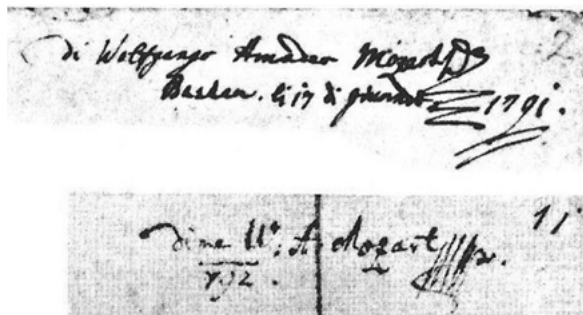 2
di Wolfgango Amadeo Mozart
Baaden. li 17 di giunio 1791.
1
di me W: A Mozart
792.